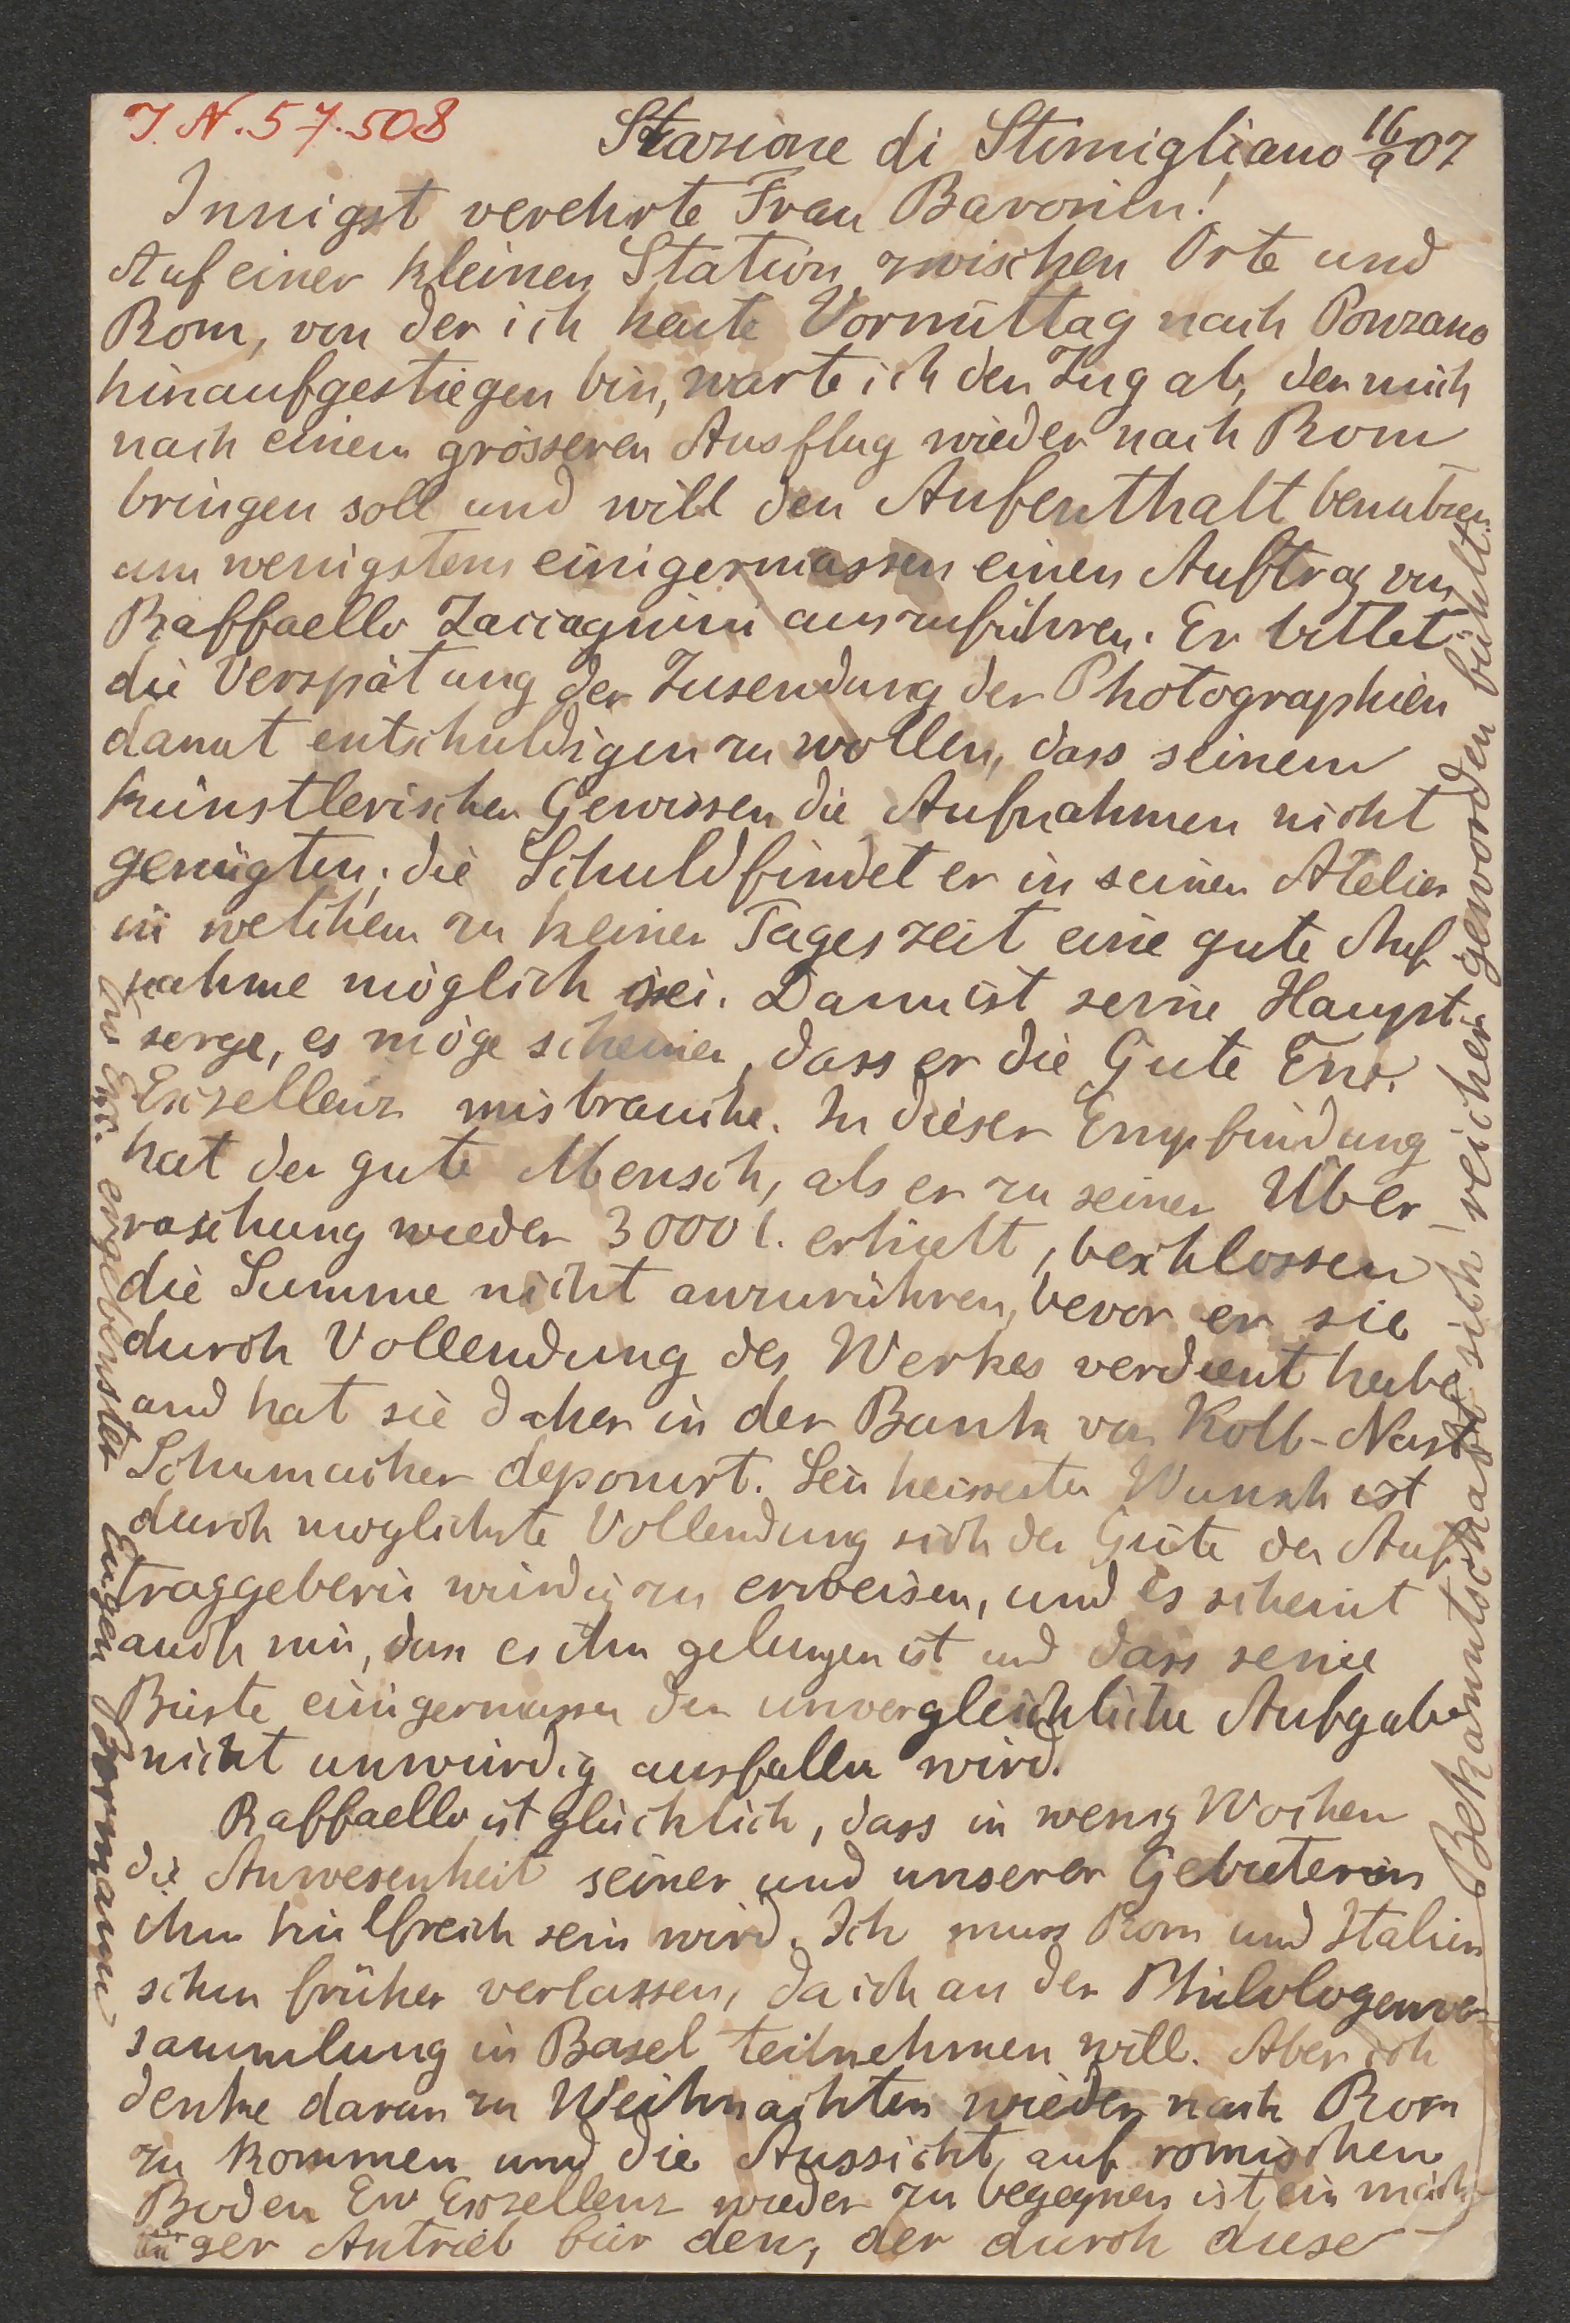 J. N. 57.508
Stazione di Stimigliano 16/9 07
Innigst verehrte Frau Baronin!
Auf einer kleinen Station zwischen Orte und
Rom, von der ich heute Vormittag nach Ponzano
hinaufgestiegen bin, warte ich den Zug ab, der mich
nach einem grösseren Ausflug wieder nach Rom
bringen soll und will den Aufenthalt benutzen
um wenigstens einigermassen einen Auftrag von
Raffaello Zaccagnini auszuführen. Er bittet
die Verspätung der Zusendung der Photographien
damit entschuldigen zu wollen, dass seinem
künstlerischen Gewissen die Aufnahmen nicht
genügten; die Schuld findet er in seinem Atelier
in welchem zu keiner Tageszeit eine gute Auf
nahme möglich sei. Dann ist seine Haupt-
sorge, es möge scheinen, dass er die Güte Euer
Exzellenz misbrauche. In dieser Empfindung
hat der gute Mensch, als er zu seiner Über
raschung wieder 3000 l. erhielt, beschlossen
die Summe nicht anzurühren, bevor er sie
durch Vollendung des Werkes verdient habe
und hat sie daher in der Bank von Kolb-Nast
Schumacher deponirt. Sein heissester Wunsch ist
durch moglichste Vollendung sich der Güte der Auf
traggeberin würdig zu erweisen, und es scheint
auch mir, dass es ihm gelungen ist und dass seine
Büste einigermassen der unvergleichlichen Aufgabe
nicht unwürdig ausfallen wird.
Raffaello ist glücklich, dass in wenig Wochen
die Anwesenheit seiner und unserer Gebieterin
ihm hülfreich sein wird. Ich muss Rom und Italien
schon früher verlassen, da ich an der Philologenver-
sammlung in Basel teilnehmen will. Aber ich
denke daran zu Weihnachten wieder nach Rom
zu kommen und die Aussicht, auf römischen
Boden Ew Exzellenz wieder zu begegnen ist ein mäch-
tiger Antrieb für den, der durch diese
Bekanntschaft sich reicher geworden fühlt.
Ew. Exz. ergebenster
Eugen Bormann